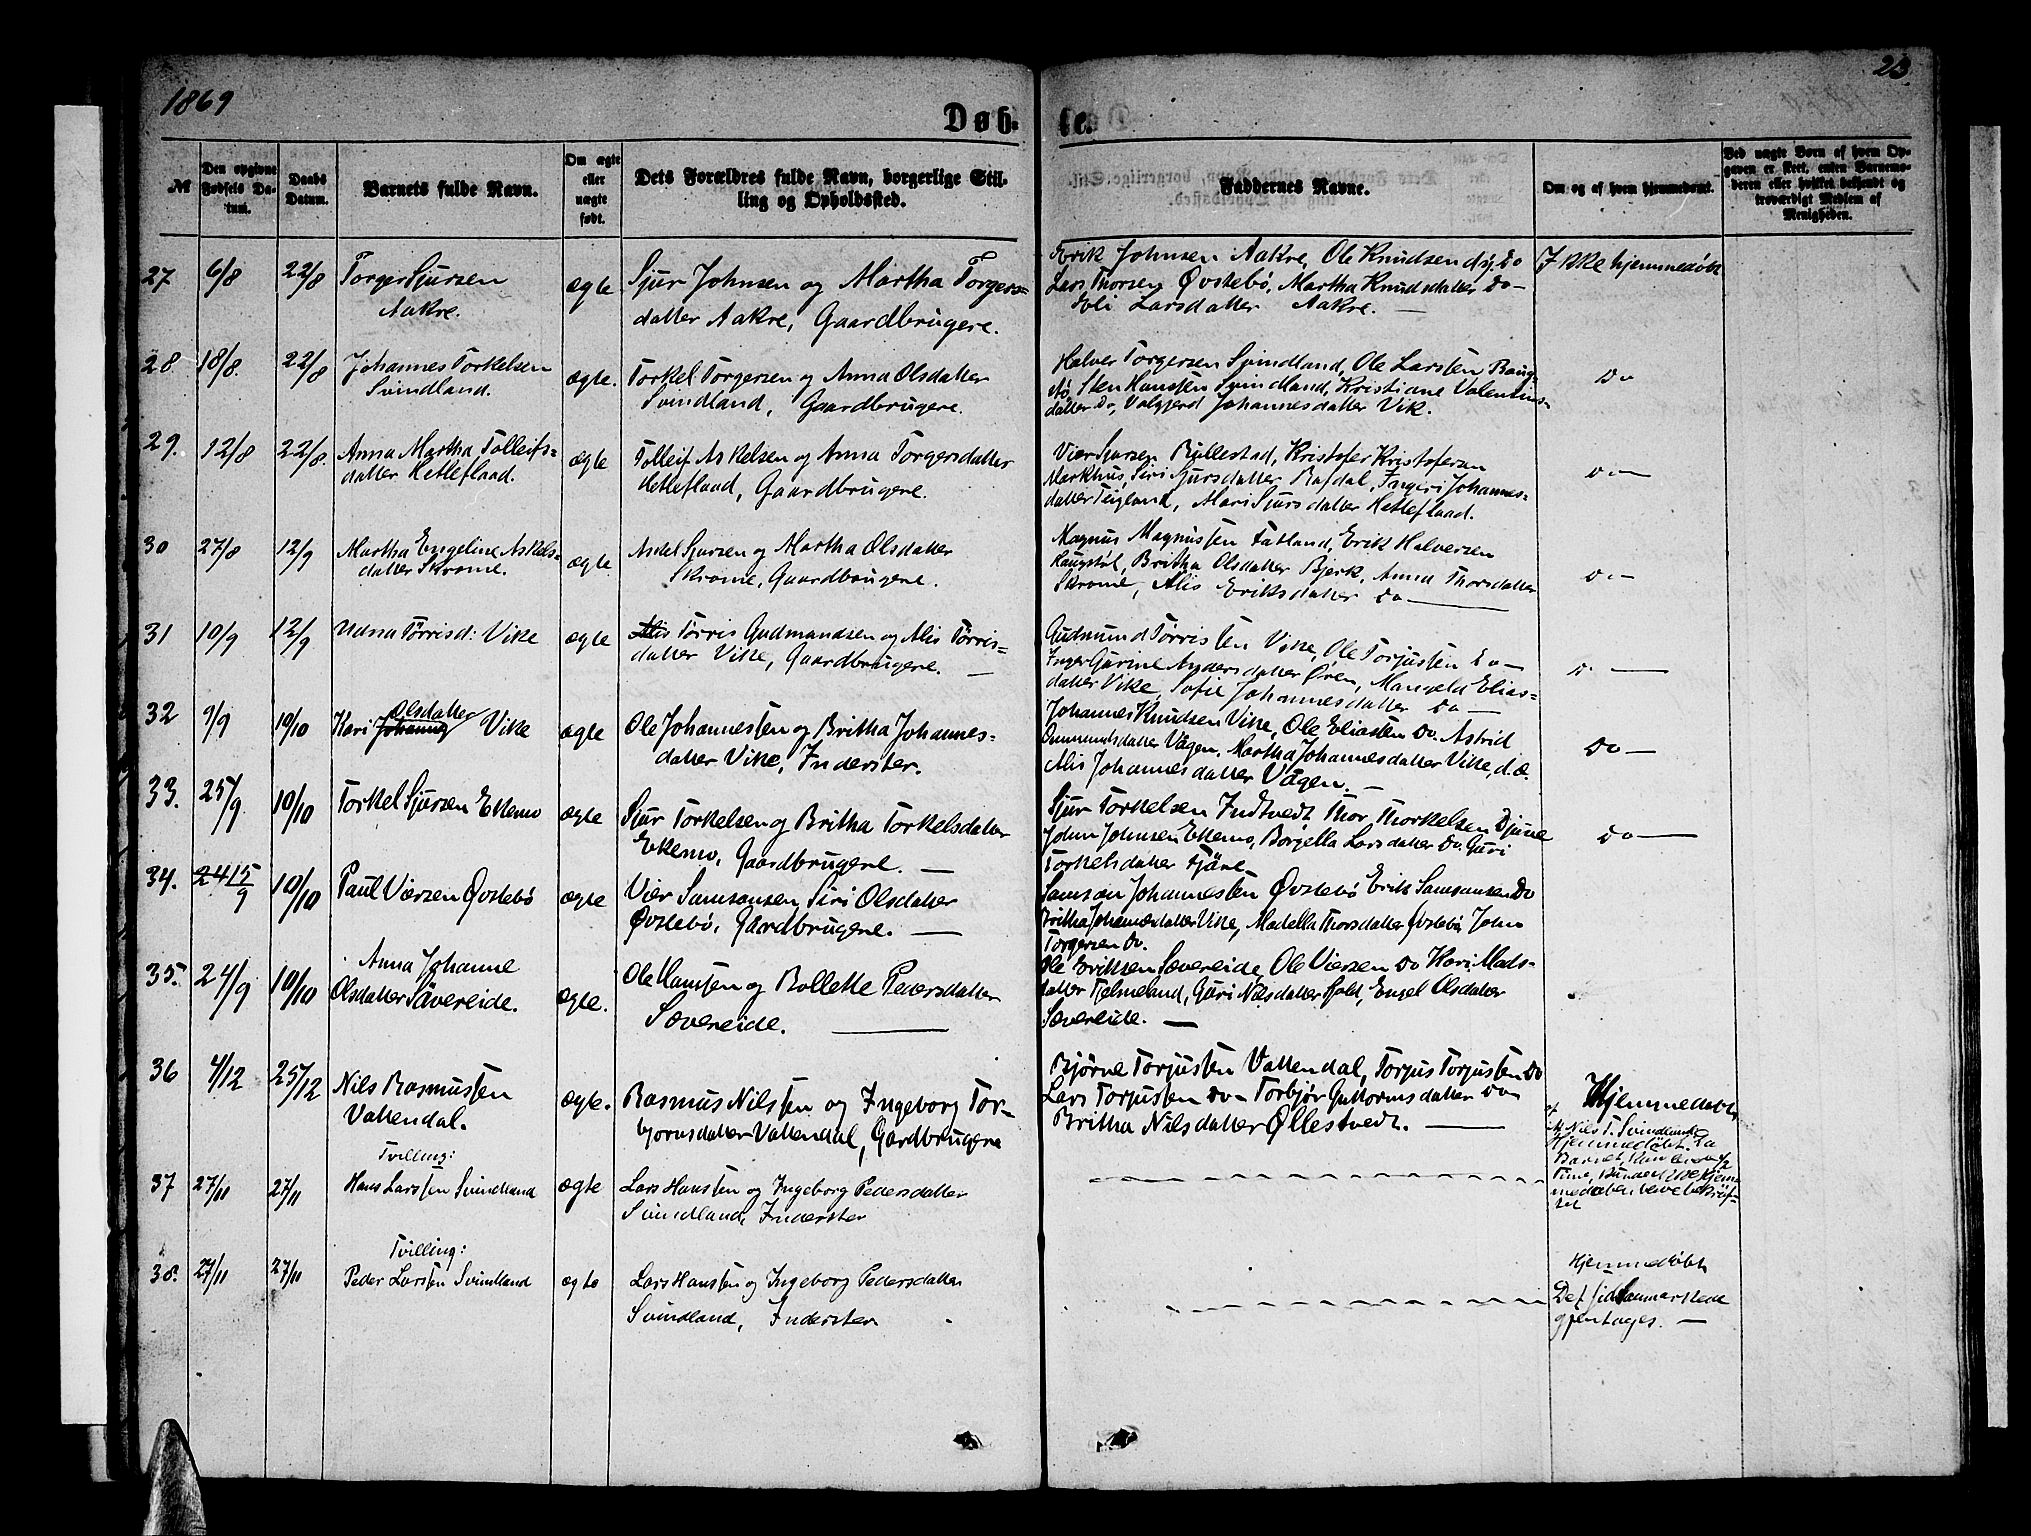 1869
23
Døb-
te.
№
Den opgivne Fødsels Datum.
Daabs Datum.
Barnets fulde Navn.
Om ægte eller uægte født.
Dets Forældres fulde Navn, borgerlige Stilling og Opholdssted.
Faddernes Navne.
Om og af hvem hjemmedøbt.
Ved uægte Børn af hvem Opgaven er skeet, enten Barnemoderen eller hvilket bekjendt og troværdigt Medlem af Menigheden.
27 6/8 22/8 Torger Sjursen
Aakre.
ægte
Sjur Johnsen og Martha Torgers=
datter Aakre, Gaardbrugere.
Erik Johnsen Aakre, Ole Knudsen dy. Do
Lars Thorsen Øvstebö, Martha Knudsdatter Do-
Eli Larsdatter Aakre. —
Ikke hjemmedøbt
28 18/8. 22/8 Johannes Torkelsen
Svindland.
ægte.
Torkel Torgersen og Anna Olsdatter
Svindland, Gaardbrugere.
Halver Torgersen Svindland, Ole Larssen Baug-
stö, Sten Hanssen Svindland, Kristiane Valentins-
datter Do, Valgjerd Johannesdatter Vik.
Do
29. 12/8 22/8. Anna Martha Tolleifs=
datter Hetleflaad.
ægte
Tolleif Askelsen og Anna Torgersdatter
Hetleflaad, Gaardbrugere.
Vier Sjursen Rullestad, Kristofer Kristofersen
Markhus, Siri Sjursdatter Rafdal, Ingeri Johannes=
datter Teigland, Mari Sjursdatter Hetleflaad.
Do—
30 27/8 12/9 Martha Engeline Askels=
datter Skrome.
ægte
Askel Sjursen og Martha Olsdatter
Skrome, Gaardbrugere.
Magnus Magnussen Fatland, Erik Halversen
Haugstöl, Britha Olsdatter Bjerk, Anna Thorsdatter
Skrome, Alis Eriksdatter Do —
Do—
31 10/9 12/9 Udna Tørrisd: Vike
ægte
Alis Tørris Gudmundsen og Alis Tørris-
datter Vike, Gaardbrugere. —
Gudmund Tørrissen Vike, Ole Torjussen Do—
Inger Gurine Andersdatter Øren, Mangela Elias-
datter Vike, Sofie Johannesdatter Do —
D. —
32 9/9 10/10 Kari Johanne Olsdatter Vike
ægte
Ole Johannessen og Britha Johannes-
datter Vike, Inderster.
Johannes Knudsen Vike, Ole Eliassen Do. Astrid
Ommundsdatter Vågen, Martha Johannesdatter Vike, d.æ.
Alis Johannesdatter Vågen. —
Do—
33. 25/9 10/10 Torkel Sjursen Ekemo
ægte
Sjur Torkelsen og Britha Torkelsdatter
Ekemo, Gaardbrugere. —
Sjur Torkelsen Indtvedt Thor Thorkelsen Djune
John Johnsen Ekemo, Borgella Larsdatter Do. Guri
Torkelsdatter
Do —
34. 24 15/9 10/10 Paul Viersen Øvstebö
ægte
Vier Samsonsen, Siri Olsdatter
Øvstebö, Gaardbrugere. —
Samson Johannessen Øvstebö Erik Samsonsen Do
Britha Johannesdatter Vike, Madella Thorsdatter Øvstebö, John
Torgersen Do.
35. 24/9 10/10 Anna Johanne
Olsdatter Sävereide.
ægte.
Ole Hanssen og Bollette Pedersdatter
Sævereide. —
Ole Eriksen Sævereide, Ole Viersen Do Kari Mads-
datter Fjelmeland, Guri Nilsdatter Hald, Engel Olsdatter
Sævereide. —
36 4/12 25/12 Nils Rasmussen
Vattendal.
ægte.
Rasmus Nilssen og Ingeborg Tor-
bjørnsdatter Vattendal, Gardbrugere
Bjørne Torjussen Vattendal, Torjus Torjussen Do
Lars Torjussen Do— Torbjør Guttormsdatter Do
Britha Nilsdatter Øllestvedt. —
Hjemmedøbt
37 27/11 27/11 Tvilling:
Hans Larssen Svindland
ægte
Lars Hanssen og Ingeborg Pedersdatter
Svindland, Inderster
af
Nils T. Svindland
Hjemmedøbt. Da
Barnet kun levede 1/2
Time, kunde ikke Hjem-
medaaben blive bekræf-
tet
38. 27/11 27/11 Tvilling:
Peder Larssen Svindland
ægte
Lars Hanssen og Ingeborg Pedersdatter
Svindland, Inderster
Hjemmedøbt
Det sid
gjentages. —